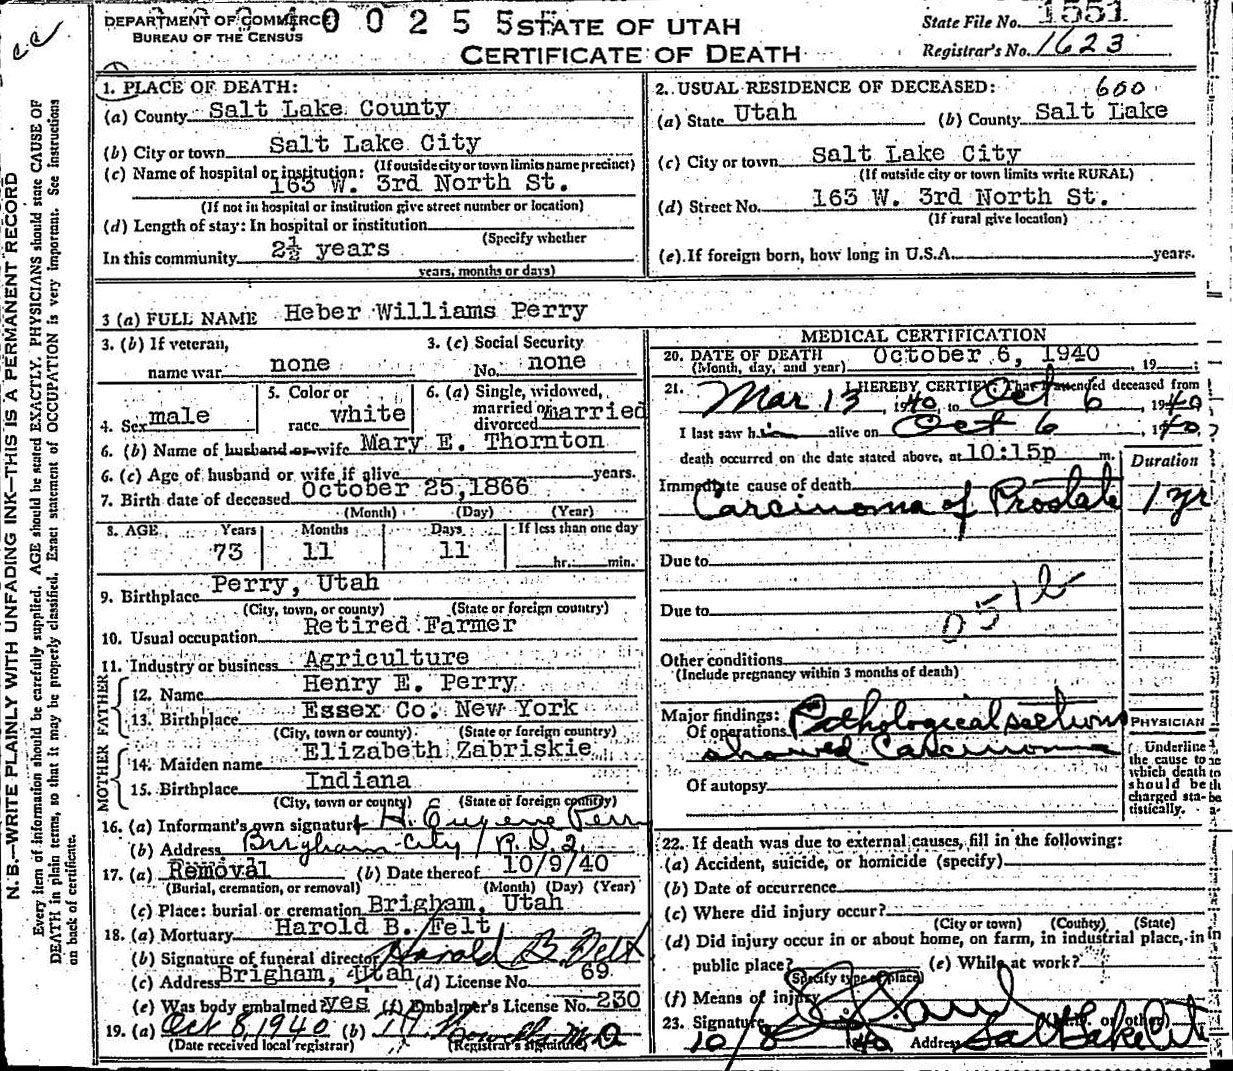 DEPARTMENT OF COMMERCE
BUREAU OF THE CENSUS
4 0 0 2 5 5
STATE OF UTAH
CERTIFICATE OF DEATH
State File No. 1551
Registrar's No. 1623
1. PLACE OF DEATH:
(a) County Salt Lake County
(b) City or town Salt Lake City
(If outside city or town limits name precinct)
(c) Name of hospital or institution:
163 W. 3rd North St.
(If not in hospital or institution give street number or location)
(d) Length of stay: In hospital or institution
(Specify whether
In this community 2½ years
years, months or days)
2. USUAL RESIDENCE OF DECEASED: 600
(a) State Utah (b) County Salt Lake
(c) City or town Salt Lake City
(If outside city or town limits write RURAL)
(d) Street No. 163 W. 3rd North St.
(If rural give location)
(e) If foreign born, how long in U.S.A. years.
3 (a) FULL NAME Heber Williams Perry
3. (b) If veteran, name war none
3. (c) Social Security No. none
4. Sex male
5. Color or race white
6. (a) Single, widowed, married or divorced married
6. (b) Name of husband or wife Mary E. Thornton
6. (c) Age of husband or wife if alive years.
7. Birth date of deceased October 25,1866
(Month) (Day) (Year)
8. AGE Years Months Days If less than one day
73 11 11 hr. min.
9. Birthplace Perry, Utah
(City, town, or county) (State or foreign country)
10. Usual occupation Retired Farmer
11. Industry or business Agriculture
FATHER
12. Name Henry E. Perry
13. Birthplace Essex Co. New York
(City, town or county) (State or foreign country)
MOTHER
14. Maiden name Elizabeth Zabriskie
15. Birthplace Indiana
(City, town or county) (State or foreign country)
16. (a) Informant's own signature H. Eugene Perry
(b) Address Brigham City R.D.2.
17. (a) Removal (b) Date thereof 10/9/40
(Burial, cremation, or removal) (Month) (Day) (Year)
(c) Place: burial or cremation Brigham, Utah
18. (a) Mortuary Harold B. Felt
(b) Signature of funeral director Harold B Felt
(c) Address Brigham, Utah (d) License No. 69
(e) Was body embalmed? yes (f) Embalmer's License No. 230
19. (a) Oct 8, 1940 (b) M.D
(Date received local registrar) (Registrar's signature)
MEDICAL CERTIFICATION
20. DATE OF DEATH October 6, 1940 , 19
(Month, day, and year)
21. I HEREBY CERTIFY That I attended deceased from
Mar 13, 1940, to Oct 6, 1940
I last saw him alive on Oct 6, 1940
death occurred on the date stated above, at 10:15p m.
Duration
Immediate cause of death
Carcinoma of Prostate 1 yr
Due to
Due to
051b
Other conditions
(Include pregnancy within 3 months of death)
Major findings:
Of operations Pathological sections
showed Carcinoma
Of autopsy
PHYSICIAN
Underline the cause to which death should be charged statistically.
22. If death was due to external causes, fill in the following:
(a) Accident, suicide, or homicide (specify)
(b) Date of occurrence
(c) Where did injury occur?
(City or town) (County) (State)
(d) Did injury occur in or about home, on farm, in industrial place, in
public place? (e) While at work?
(Specify type of place)
(f) Means of injury
23. Signature M.D. or other
10/8 1940 Address Salt Lake
N. B.—WRITE PLAINLY WITH UNFADING INK—THIS IS A PERMANENT RECORD
Every item of information should be carefully supplied. AGE should be stated EXACTLY. PHYSICIANS should state CAUSE OF
DEATH in plain terms, so that it may be properly classified. Exact statement of OCCUPATION is very important. See instructions
on back of certificate.